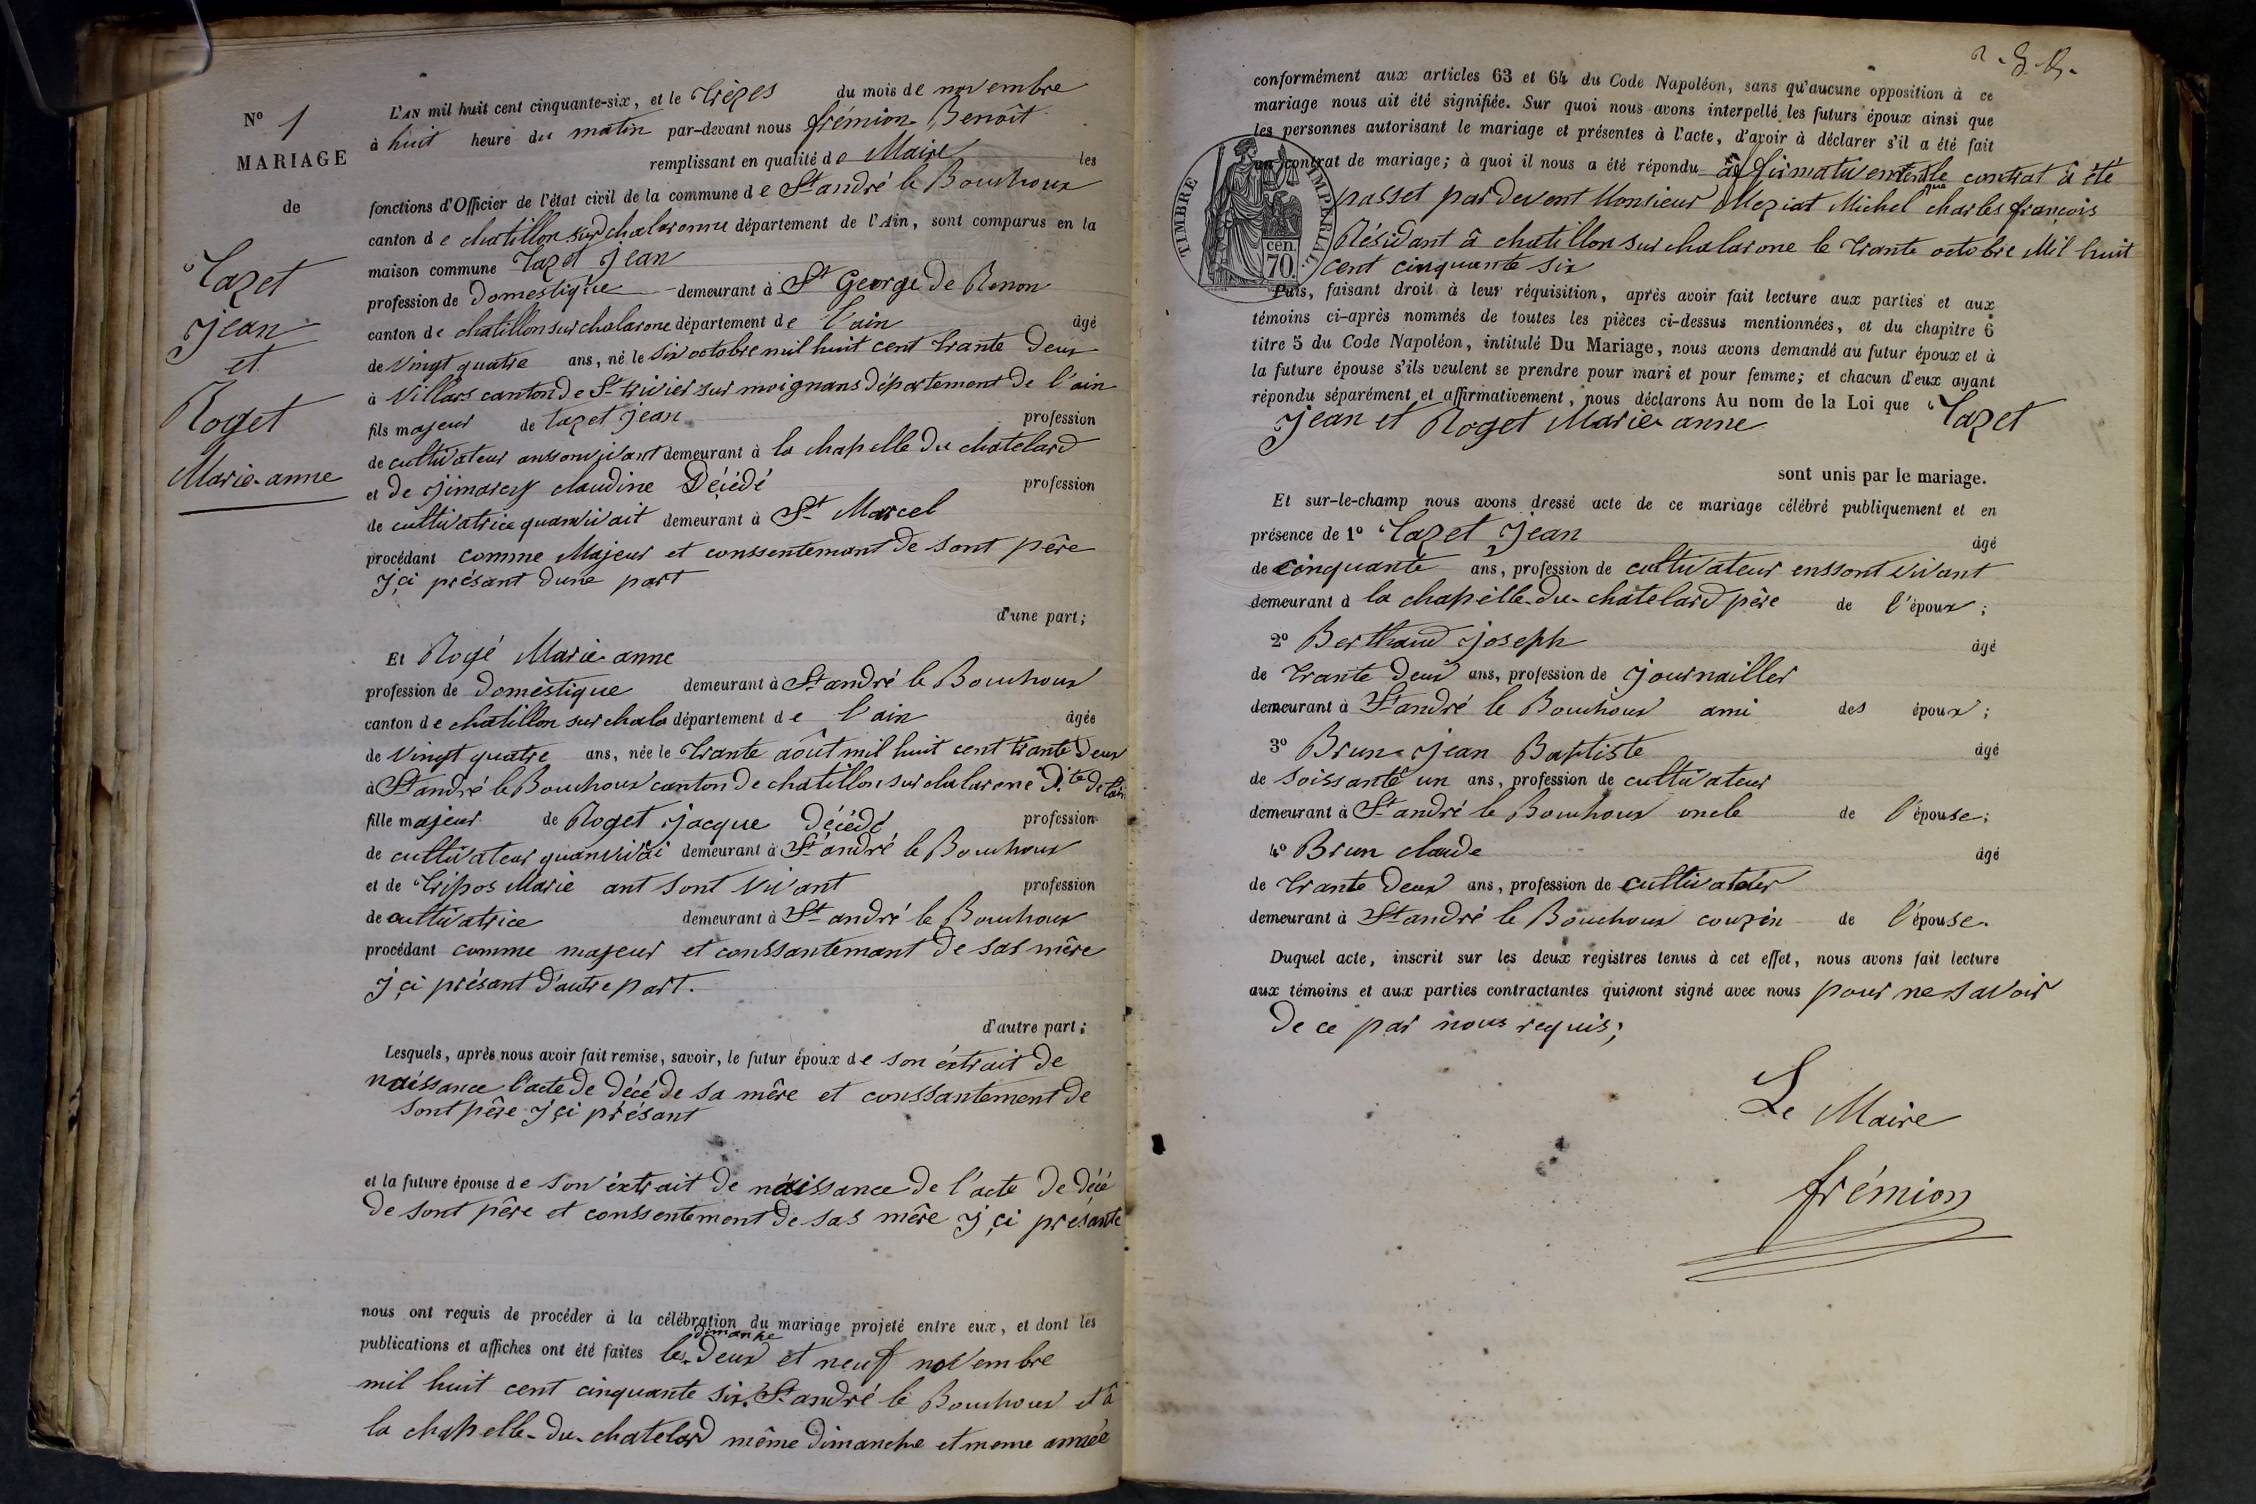 N° 1
MARIAGE
de
Tazet
Jean
et
Roget
Marie-anne
L'AN mil huit cent cinquante-six, et le Trèzes du mois de novembre
à huit heure du matin par-devant nous frémion Benoît
remplissant en qualité de Maire les
fonctions d'Officier de l'état civil de la commune de St andré le Bouchoux
canton de chatillon sur chalaronne département de l'Ain, sont comparus en la
maison commune Tazet Jean
profession de Domestique demeurant à St George de Renon
canton de chatillon sur chalarone département de l'ain âgé
de vingt quatre ans, né le six octobre mil huit cent trante Deux
à Villars canton de St trivier sur moignans département de l'ain
fils majeur de Tazet Jean profession
de cultivateur ansonvivant demeurant à la chapelle du chatelard
et de Jimarey claudine Décédé profession
de cultivatrice quanvivait demeurant à St Marcel
procédant comme Majeur et conssentemant de sont père
Jçi présant dune part
d'une part;
Et Rogé Marie anne
profession de domèstique demeurant à St andré le Bouchoux
canton de chatillon sur chala département de l'ain âgée
de vingt quatre ans, née le trante août mil huit cent trante Deux
à St andré le Bouchoux canton de chatillon sur chalarone D.te de l'ain
fille majeur de Roget Jacque Décédé profession
de cultivateur quanvivai demeurant à St andré le Bouchoux
et de Tripos Marie ant sont vivant profession
de cultivatrice demeurant à St andré le Bouchoux
procédant comme majeur et conssantemant de sas mère
Jçi présant d'autre part.
d'autre part;
Lesquels, après nous avoir fait remise, savoir, le futur époux de son éxtrait de
naissance l'acte de décé de sa mère et conssantement de
sont père Jçi présant
et la future épouse de son éxtrait de naissance de l'acte de décé
de sont père et conssentemont de sas mère Jçi présante
nous ont requis de procéder à la célébration du mariage projeté entre eux, et dont les
dimanhe
publications et affiches ont été faites les Deux et neuf novembre
mil huit cent cinquante six St andré le Bouchoux et à
la chapelle-du-chatelard même Dimanche et mome année
conformément aux articles 63 et 64 du Code Napoléon, sans qu'aucune opposition à ce
mariage nous ait été signifiée. Sur quoi nous avons interpellé les futurs époux ainsi que
les personnes autorisant le mariage et présentes à l'acte, d'avoir à déclarer s'il a été fait
un contrat de mariage; à quoi il nous a été répondu affirmativement que le contrat à été
passet par devent Monsieur Meziat Michel charles françois
Résidant à chatillon sur chalarone le trante octobre Mil huit
cent cinquante six
TIMBRE IMPERIAL
70 cen.
Puis, faisant droit à leur réquisition, après avoir fait lecture aux parties et aux
témoins ci-après nommés de toutes les pièces ci-dessus mentionnées, et du chapitre 6
titre 5 du Code Napoléon, intitulé Du Mariage, nous avons demandé au futur époux et à
la future épouse s'ils veulent se prendre pour mari et pour femme; et chacun d'eux ayant
répondu séparément et affirmativement, nous déclarons Au nom de la Loi que Tazet
Jean et Roget Marie anne
sont unis par le mariage.
Et sur-le-champ nous avons dressé acte de ce mariage célébré publiquement et en
présence de 1° Tazet Jean âgé
de cinquante ans, profession de cultivateur enssont vivant
demeurant à la chapelle-du-chatelard père de l'époux;
2° Berthaud Joseph âgé
de trante Deux ans, profession de Journailler
demeurant à St andré le Bouchoux ami des époux;
3° Brun Jean Baptiste âgé
de soissante un ans, profession de cultivateur
demeurant à St andré le Bouchoux oncle de l'épouse;
4° Brun claude âgé
de trante Deux ans, profession de cultivateur
demeurant à St andré le Bouchoux couzin de l'épouse.
Duquel acte, inscrit sur les deux registres tenus à cet effet, nous avons fait lecture
aux témoins et aux parties contractantes qui ont signé avec nous pour ne savoir
de ce par nous requis;
Le Maire
frémion